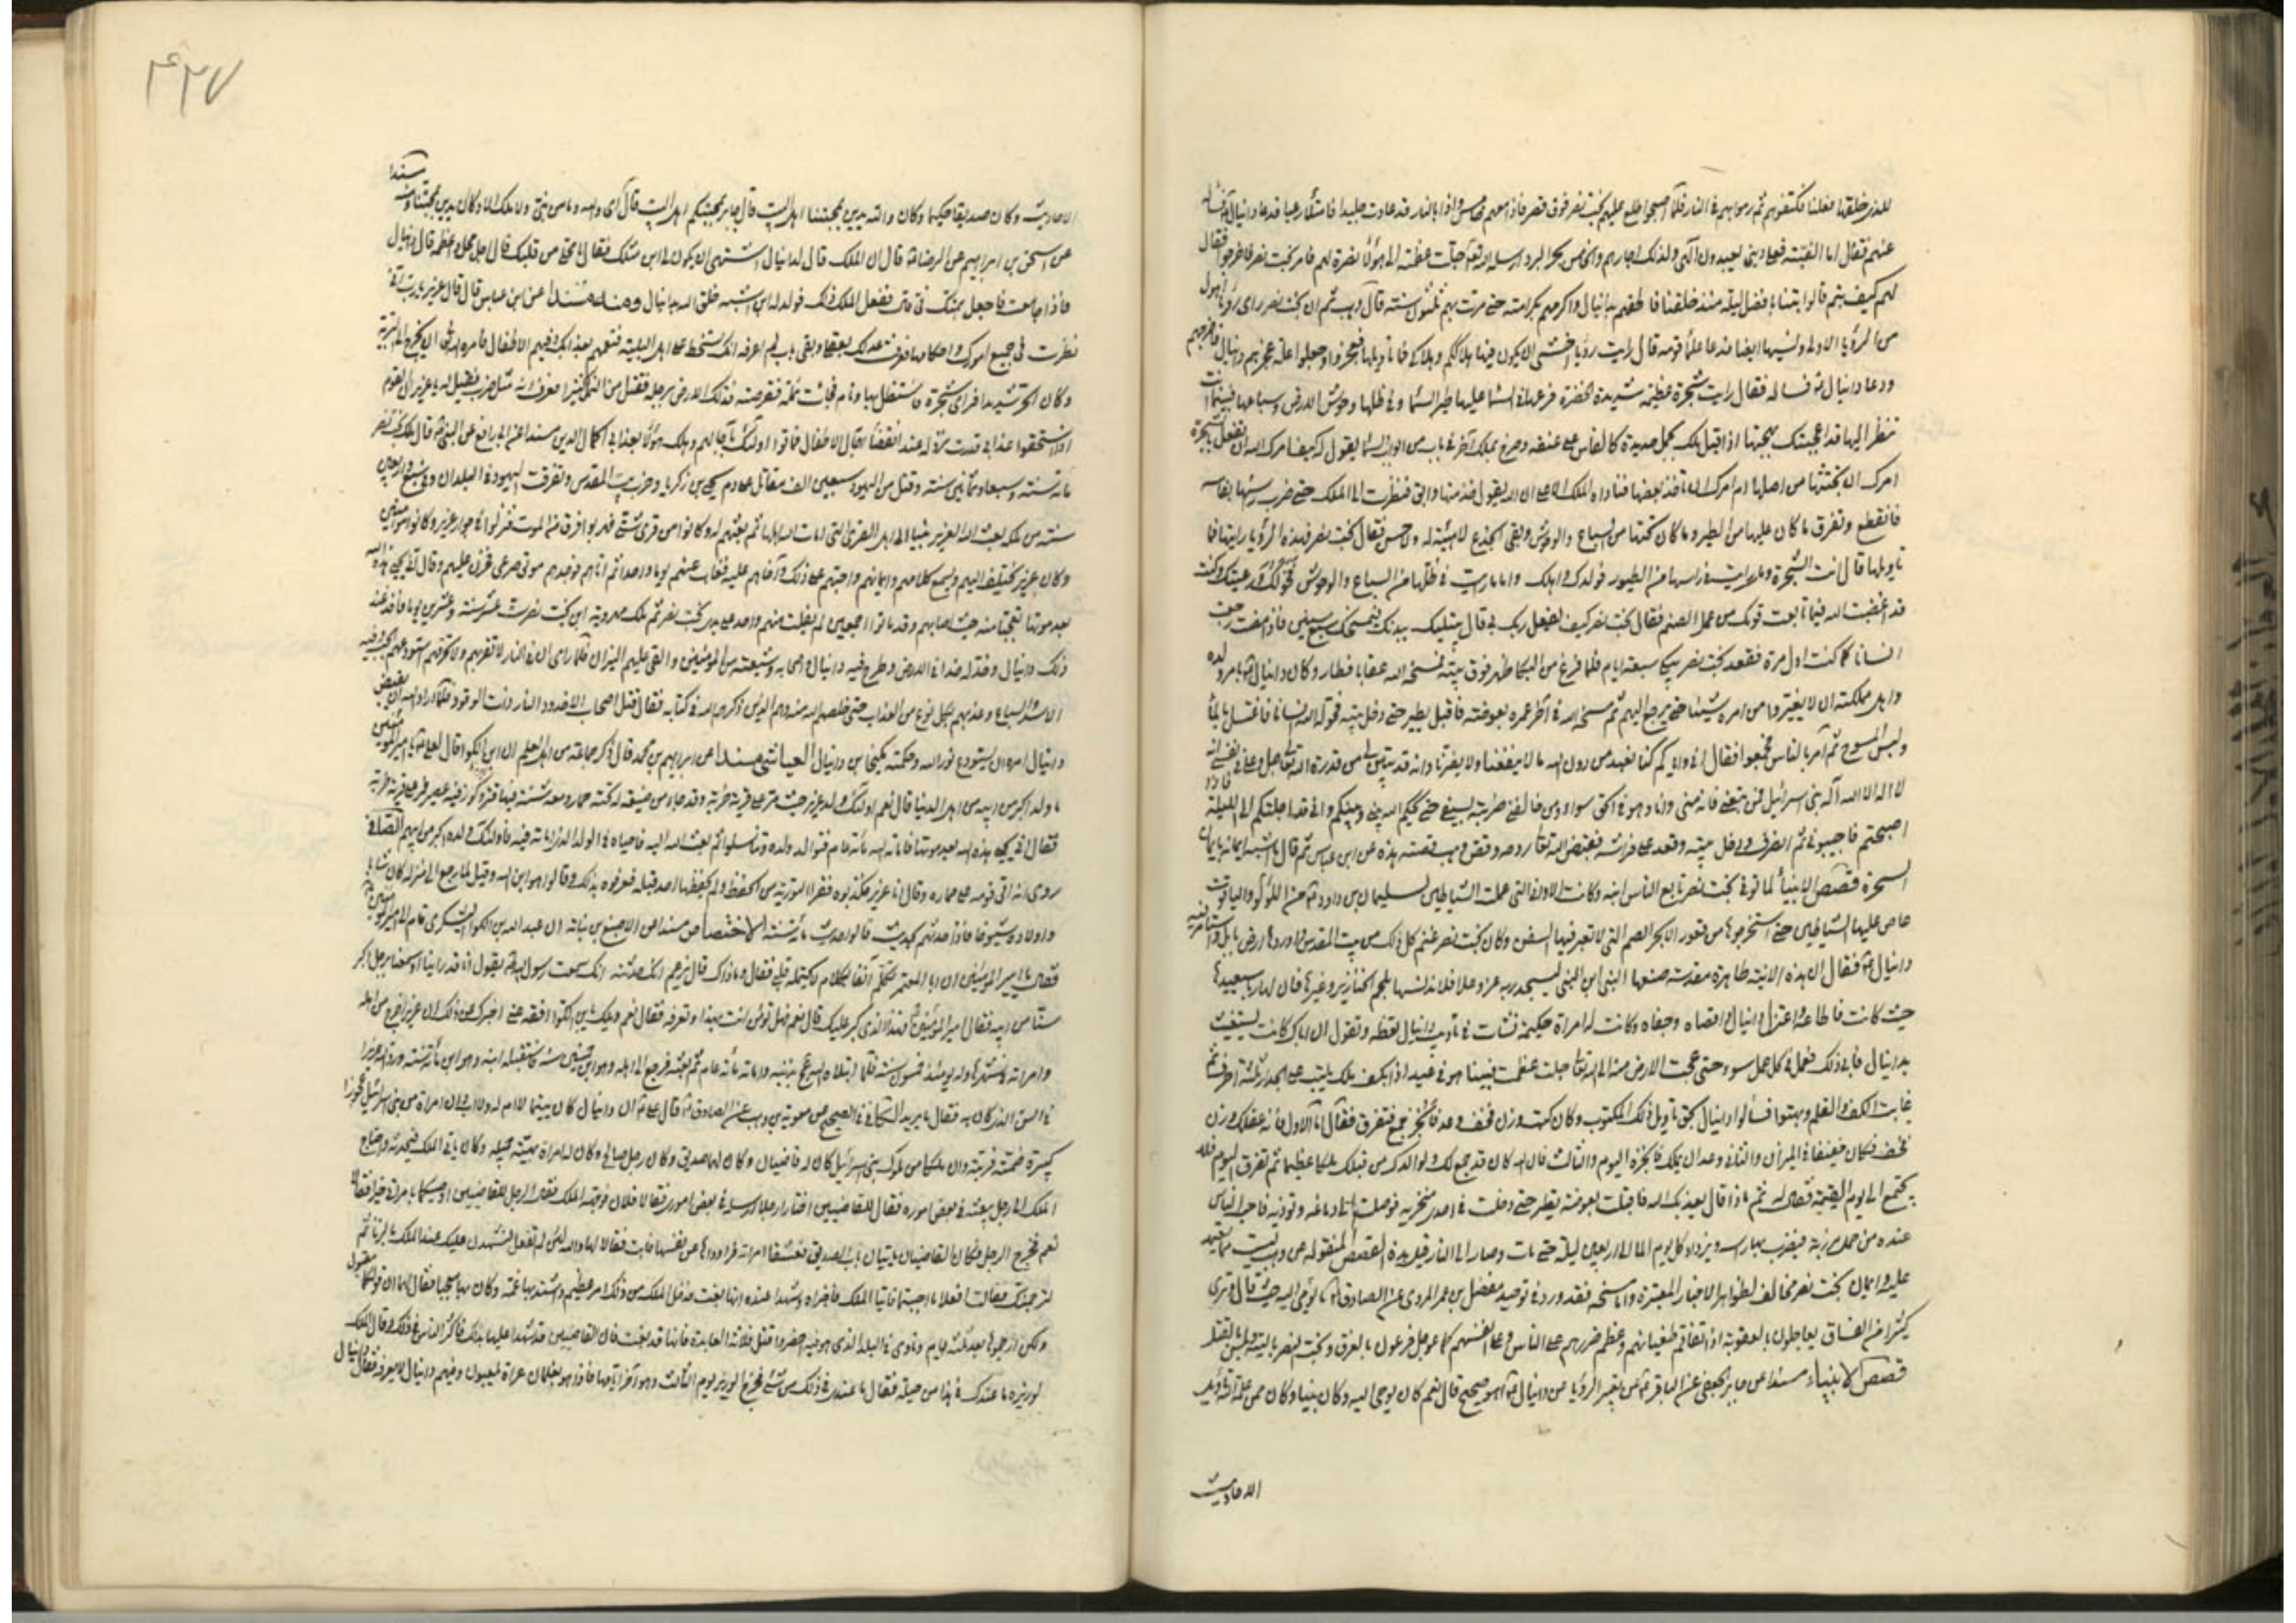 للذي خلقنا ففعلنا فكتفوهم ثم رموا بهم في النار فلما اصبحوا اطلع عليهم بخت نصر فوق قصر فاذا معهم خامس واذا بالنار قد عادت جليدا فامتلأ رعبا فدعا دانيال فسأله
عنهم فقال اما الفتية فعلى ديني يعبدون الهي ولذلك اجارهم والخامس بحر البرد ارسله الله تعالى جلت عظمته الى هؤلاء نصرة لهم فامر بخت نصر فاخرجوا فقال
لهم كيف بتم قالوا بتنا بافضل ليلة منذ خلقنا فالحقهم بدانيال واكرمهم بكرامته حتى مرت بهم ثلثون سنة قال وهب ثم ان بخت نصر راى رؤيا اهول
من الرؤيا الاولى ونسيها ايضا فدعا علماء قومه قال رايت رؤيا اخشى ان يكون فيها هلاككم وهلاكي فما تاويلها فعجزوا وجعلوا علة عجزهم دانيال فاخرجهم
ودعا دانيال فساله فقال رايت شجرة عظيمة شديدة الخضرة فرعها في السماء عليها طير السماء وفي ظلها وحوش الارض وسباعها فبينما انا
انظر اليها قد اعجبتني بهجتها اذ اقبل ملك يحمل حديدة كالفاس على عنقه وصرخ بملك آخر في باب من ابواب السماء يقول له كيف امرك الله ان تفعل بالشجرة
امرك ان تجتثها من اصلها ام امرك ان تاخذ بعضها فناداه الملك الاعلى ان الله يقول خذ منها وابق فنظرت الى الملك حتى ضرب رأسها بفاسه
فانقطع وتفرق ما كان عليها من الطير وما كان تحتها من السباع والوحوش وبقي الجذع لا هيئة له ولا حسن فقال بخت نصر فهذه الرؤيا رايتها فما
تاويلها قال انت الشجرة وما رايت في راسها من الطيور فولدك واهلك واما ما رايت في ظلها من السباع والوحوش فخولك ورعيتك وكنت
قد اغضبت الله فيما تابعت قومك من عمل الصنم فقال بخت نصر كيف يفعل ربك بي قال يبتليك ببدنك فيمسخك سبع سنين فاذا مضت رجعت
انسانا كما كنت اول مرة فقعد بخت نصر يبكي سبعة ايام فلما فرغ من البكاء ظهر فوق بيته فمسخه الله عقابا فطار وكان دانيال يامر ولده
واهل مملكته ان لا يغيروا من امره شيئا حتى يرجع اليهم ثم مسخه الله في آخر عمره بعوضة فاقبل يطير حتى دخل بيته فحوله الله انسانا فاغتسل بالماء
ولبس المسوح ثم امر بالناس فجمعوا فقال اني واياكم كنا نعبد من دون الله ما لا ينفعنا ولا يضرنا وانه قد تبين لي من قدرة الله تعالى جل وعلا في نفسي انه
لا اله الا الله اله بني اسرائيل فمن تبعني فانه مني وانا وهو في الحق سواء ومن خالفني ضربته بسيفي حتى يحكم الله بيني وبينكم واني قد اجلتكم الى الليلة فاذا
اصبحتم فاجيبوني ثم انصرف ودخل بيته وقعد على فراشه فقبض الله تعالى روحه وقص وهب قصته هذه عن ابن عباس ثم قال ما اشبه ايمانه بايمان
السحرة قصص الانبياء لما توفي بخت نصر تابع الناس ابنه وكانت الاواني التي عملت الشياطين لسليمان بن داود من اللؤلؤ والياقوت
غاص عليها الشياطين حتى استخرجوها من قعور الابحر الصم التي لا تعبر فيها السفن وكان بخت نصر غنم كل ذلك من بيت المقدس واوردها ارض بابل واستامر فيه
دانيال فقال ان هذه الانية طاهرة مقدسة صنعها النبي ابن النبي ليسجد ربه عز وعلا فلا تدنسها بلحم الخنازير وغيرها فان لها ربا سيعيدها
حيث كانت فاطاعه واعتزل دانيال واقصاه وجفاه وكانت له امراة حكيمة نشات في تاديب دانيال تعظه وتقول ان اباك كان يستغيث
بدانيال فابى ذلك فعمل في كل عمل سوء حتى عجت الارض منه الى الله تعالى جلت عظمته فبينا هو في عيد اذا بكف ملك يكتب على الجدار ثلثة احرف ثم
غابت الكف والقلم وبهتوا فسألوا دانيال بحق تاويل ذلك المكتوب وكان كتب وزن فخف وعد فانجز جمع فتفرق فقال اما الاول فانه عقلك وزن
فخف فكان خفيفا في الميزان والثاني وعد ان يملك فانجزه اليوم والثالث فان الله كان قد جمع لك ولوالدك من قبلك ملكا عظيما ثم تفرق اليوم فلا
يجتمع الى يوم القيمة فقال له ثم ماذا قال يعذبك الله فاقبلت بعوضة تطير حتى دخلت في احد منخريه فوصلت الى دماغه وتوذيه فاحب الناس
عنده من حمل مرزبة فيضرب بها راسه ويزداد كل يوم الما الى اربعين ليلة حتى مات وصار الى النار قيل هذه القصص المنقولة عن وهب ليست مما يعتمد
عليه وايمان بخت نصر مخالف لظواهر الاخبار المعتبرة واما مسخه فقد ورد في توحيد مفضل بن عمر المروي عن الصادق ما يومي اليه حيث قال وترى
كثيرا من الفساق يعاجلون بالعقوبة اذا تفاقم طغيانهم وعظم ضررهم على الناس وعلى انفسهم كما عوجل فرعون بالغرق وبخت نصر بالتيه وبلبيس بالقتل
قصص الانبياء مسندا عن جابر الجعفي عن الباقر عن تعبير الرؤيا عن دانيال اهو صحيح قال نعم كان يوحى اليه وكان نبيا وكان ممن علمه الله تاويل
الاحاديث
۴۲۷
الاحاديث وكان صديقا حكيما وكان والله يدين بمحبتنا اهل البيت قال جابر بمحبتكم اهل البيت قال اي والله وما من نبي ولا ملك الا وكان يدين بمحبتنا ومنه مسندا
عن اسحق بن ابراهيم عن الرضا قال ان الملك قال لدانيال اشتهي ان يكون لي ابن مثلك فقال ما محلي من قلبك قال اجل محل واعظمه قال دانيال
فاذا جامعت فاجعل همتك في قال ففعل الملك ذلك فولد له ابن اشبه خلق الله بدانيال ومنه مسندا عن ابن عباس قال قال عزير يا رب اني
نظرت في جميع امورك واحكامها فعرفت عدلك بعقلي وبقي باب لم اعرفه انك تسخط على اهل البلية فتعمهم بعذابك وفيهم الاطفال فامره الله ان يخرج الى البرية
وكان الحر شديدا فراى شجرة فاستظل بها ونام فجاءت نملة فقرصته فدلك الارض برجله فقتل من النمل كثيرا فعرف انه مثل ضرب فقيل له يا عزير ان القوم
اذا استحقوا عذابي قدرت نزوله عند انقضاء آجال الاطفال فماتوا اولئك بآجالهم وهلك هؤلاء بعذابي اكمال الدين مسندا عن ابي رافع عن النبي قال ملك بخت نصر
مائة سنة وسبعا وثمانين سنة وقتل من اليهود سبعين الف مقاتل على دم يحيى بن زكريا وخرب بيت المقدس وتفرقت اليهود في البلدان وفي سبع واربعين
سنة من ملكه بعث الله العزير نبيا الى اهل القرى التي امات الله اهلها ثم بعثهم له وكانوا من قرى شتى فهربوا فرقا من الموت فنزلوا في جوار عزير وكانوا مؤمنين
وكان عزير يختلف اليهم ويسمع كلامهم وايمانهم واحبهم على ذلك وآخاهم عليه فغاب عنهم يوما واحدا ثم اتاهم فوجدهم موتى صرعى فحزن عليهم وقال انى يحيي هذه الله
بعد موتها تعجبا منه حيث اصابهم وقد ماتوا اجمعين لم يفلت منهم واحد على يدي بخت نصر ثم ملك مهرويه ابن بخت نصر ست عشر سنة وعشرين يوما فاخذ عند
ذلك دانيال وخد له خدا في الارض وطرح فيه دانيال واصحابه وشيعته من المؤمنين والقى عليهم النيران فلما راى ان النار لا تقربهم ولا تحرقهم استودعهم الجب وفيه
الاسد والسباع وعذبهم بكل نوع من العذاب حتى خلصهم الله منه وهم الذين ذكرهم الله في كتابه فقال قتل اصحاب الاخدود النار ذات الوقود فلما اراد الله ان يقبض
دانيال امره ان يستودع نور الله وحكمته مكيخا بن دانيال العياشي مسندا عن ابراهيم بن محمد قال ذكر جماعة من اهل العلم ان ابن الكوا قال لعلي يا امير المؤمنين
ما ولد اكبر من ابيه من اهل الدنيا قال نعم اولئك ولد عزير حيث مر على قرية خربة وقد جاء من ضيعة له تحته حمار ومعه شنة فيها تين وكوز فيه عصير فمر على قرية خربة
فقال انى يحيي هذه الله بعد موتها فاماته الله مائة عام فتوالد ولده وتناسلوا ثم بعث الله اليه فاحياه في الولد الذي اماته فيه فاولئك ولده اكبر من ابيهم القصاص
روي انه اتى قومه على حماره وقال انا عزير فكذبوه فقرا التورية من الحفظ ولم يحفظها احد قبله فعرفوه بذلك وقالوا هو ابن الله وقيل لما رجع الى منزله كان شابا
واولاده شيوخا فاذا حدثهم بحديث قالوا حديث مائة سنة الاختصاص مسندا عن الاصبغ بن نباته ان عبد الله بن الكوا اليشكري قام الى امير المؤمنين
فقال يا امير المؤمنين ان ابا المعتمر تكلم آنفا بكلام لا يحتمله قلبي فقال وما ذاك قال يزعم انك حدثته انك سمعت رسول الله يقول انا قد راينا او سمعنا برجل اكبر
سنا من ابيه فقال امير المؤمنين فهذا الذي كبر عليك قال نعم فهل تؤمن انت بهذا وتعرفه فقال نعم ويلك يا بن الكوا افقه عني اخبرك عن ذلك ان عزيرا خرج من اهله
وامراته في شهرها وله يومئذ خمسون سنة فلما ابتلاه الله عز وجل بذنبه واماته مائة عام ثم بعثه فرجع الى اهله وهو ابن خمسين سنة فاستقبله ابنه وهو ابن مائة سنة ورد الله عزيرا
في السن الذي كان به فقال ما يريد الكافي في الصحيح عن معوية بن وهب عن الصادق قال على ان دانيال كان يتيما لا ام له ولا اب وان امراة من بني اسرائيل عجوزا
كبيرة ضمته فربته وان ملكا من ملوك بني اسرائيل كان له قاضيان وكان لهما صديق وكان رجل صالح وكان له امراة بهية جميلة وكان ياتي الملك فيحدثه واحتاج
الملك الى رجل يبعثه في بعض اموره فقال للقاضيين اختارا رجلا ارسله في بعض اموري فقالا فلان فوجهه الملك فقال الرجل للقاضيين اوصيكما بامراتي خيرا فقالا
نعم فخرج الرجل فكان القاضيان ياتيان باب الصديق فعشقا امراته فراوداها عن نفسها فابت فقالا لها والله لئن لم تفعلي لنشهدن عليك عند الملك بالزنا ثم
لنرجمنك فقالت افعلا ما احببتما فاتيا الملك فاخبراه وشهدا عنده انها بغت فدخل الملك من ذلك امر عظيم واشتد بها غمه وكان بها معجبا فقال لهما ان قولكما مقبول
ولكن ارجموها بعد ثلثة ايام ونادى في البلد الذي هو فيه احضروا قتل فلانة العابدة فانها قد بغت فان القاضيين قد شهدا عليها بذلك فاكثر الناس في ذلك وقال الملك
لوزيره ما عندك في هذا من حيلة فقال ما عندي في ذلك من شيء فخرج الوزير يوم الثالث وهو آخر ايامها فاذا هو بغلمان عراة يلعبون وفيهم دانيال لا يعرفه فقال دانيال